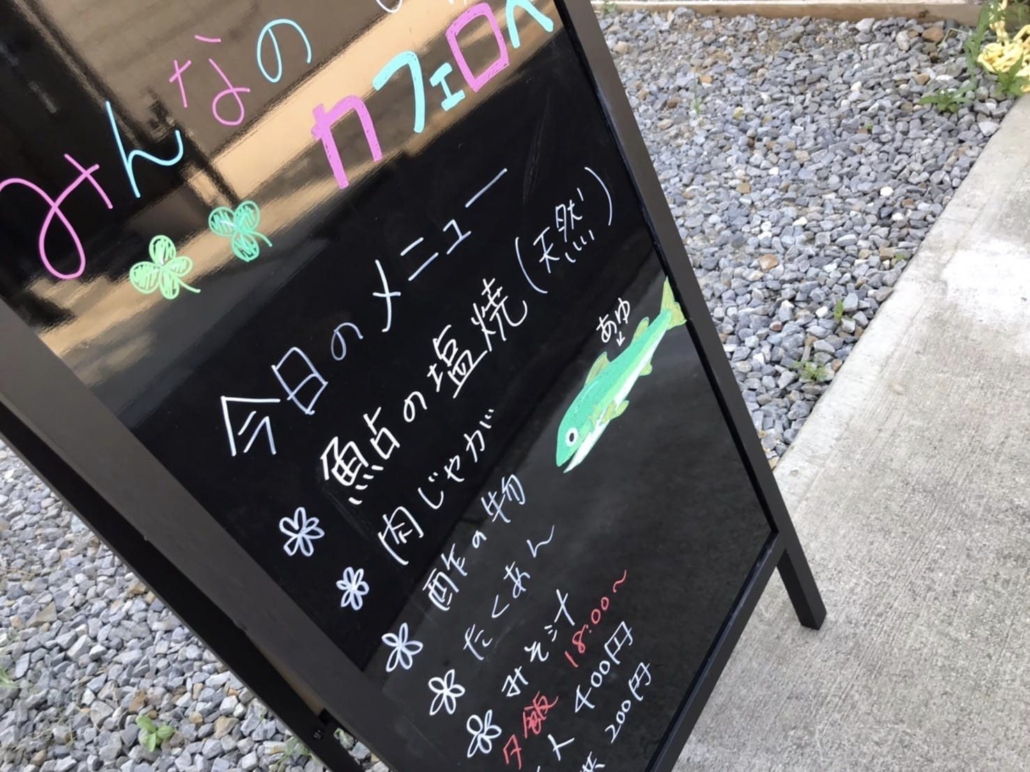 みんなの
カフェロペ
今日のメニュー
鮎の塩焼(天然)
あゆ
肉じゃが
酢の物
たくあん
みそ汁
夕飯 18:00〜
大人 400円
200円